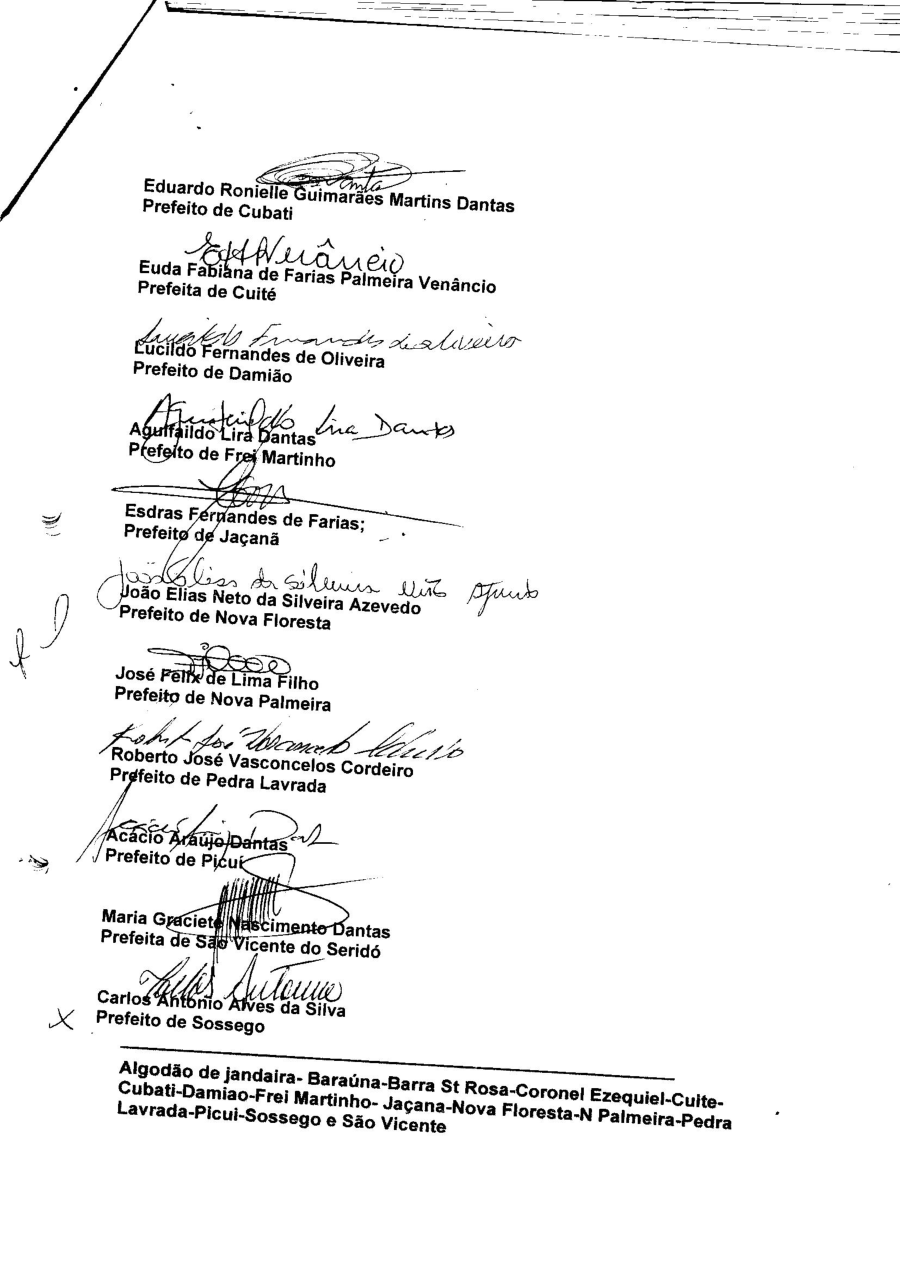 Eduardo Ronielle Guimarães Martins Dantas
Prefeito de Cubati
EFF Venâncio
Euda Fabiana de Farias Palmeira Venâncio
Prefeita de Cuité
Lucildo Fernandes de oliveira
Lucildo Fernandes de Oliveira
Prefeito de Damião
Aguifaildo Lira Dantas
Aguifaildo Lira Dantas
Prefeito de Frei Martinho
Esdras Fernandes de Farias;
Prefeito de Jaçanã
João Elias da Silveira Neto
João Elias Neto da Silveira Azevedo
Prefeito de Nova Floresta
José Felix de Lima Filho
Prefeito de Nova Palmeira
Roberto José Vasconcelos Cordeiro
Roberto José Vasconcelos Cordeiro
Prefeito de Pedra Lavrada
Acácio Araújo Dantas
Prefeito de Picuí
Maria Graciete Nascimento Dantas
Prefeita de São Vicente do Seridó
Carlos Antonio
Carlos Antônio Alves da Silva
Prefeito de Sossego
Algodão de jandaira- Baraúna-Barra St Rosa-Coronel Ezequiel-Cuite-
Cubati-Damiao-Frei Martinho- Jaçana-Nova Floresta-N Palmeira-Pedra
Lavrada-Picui-Sossego e São Vicente